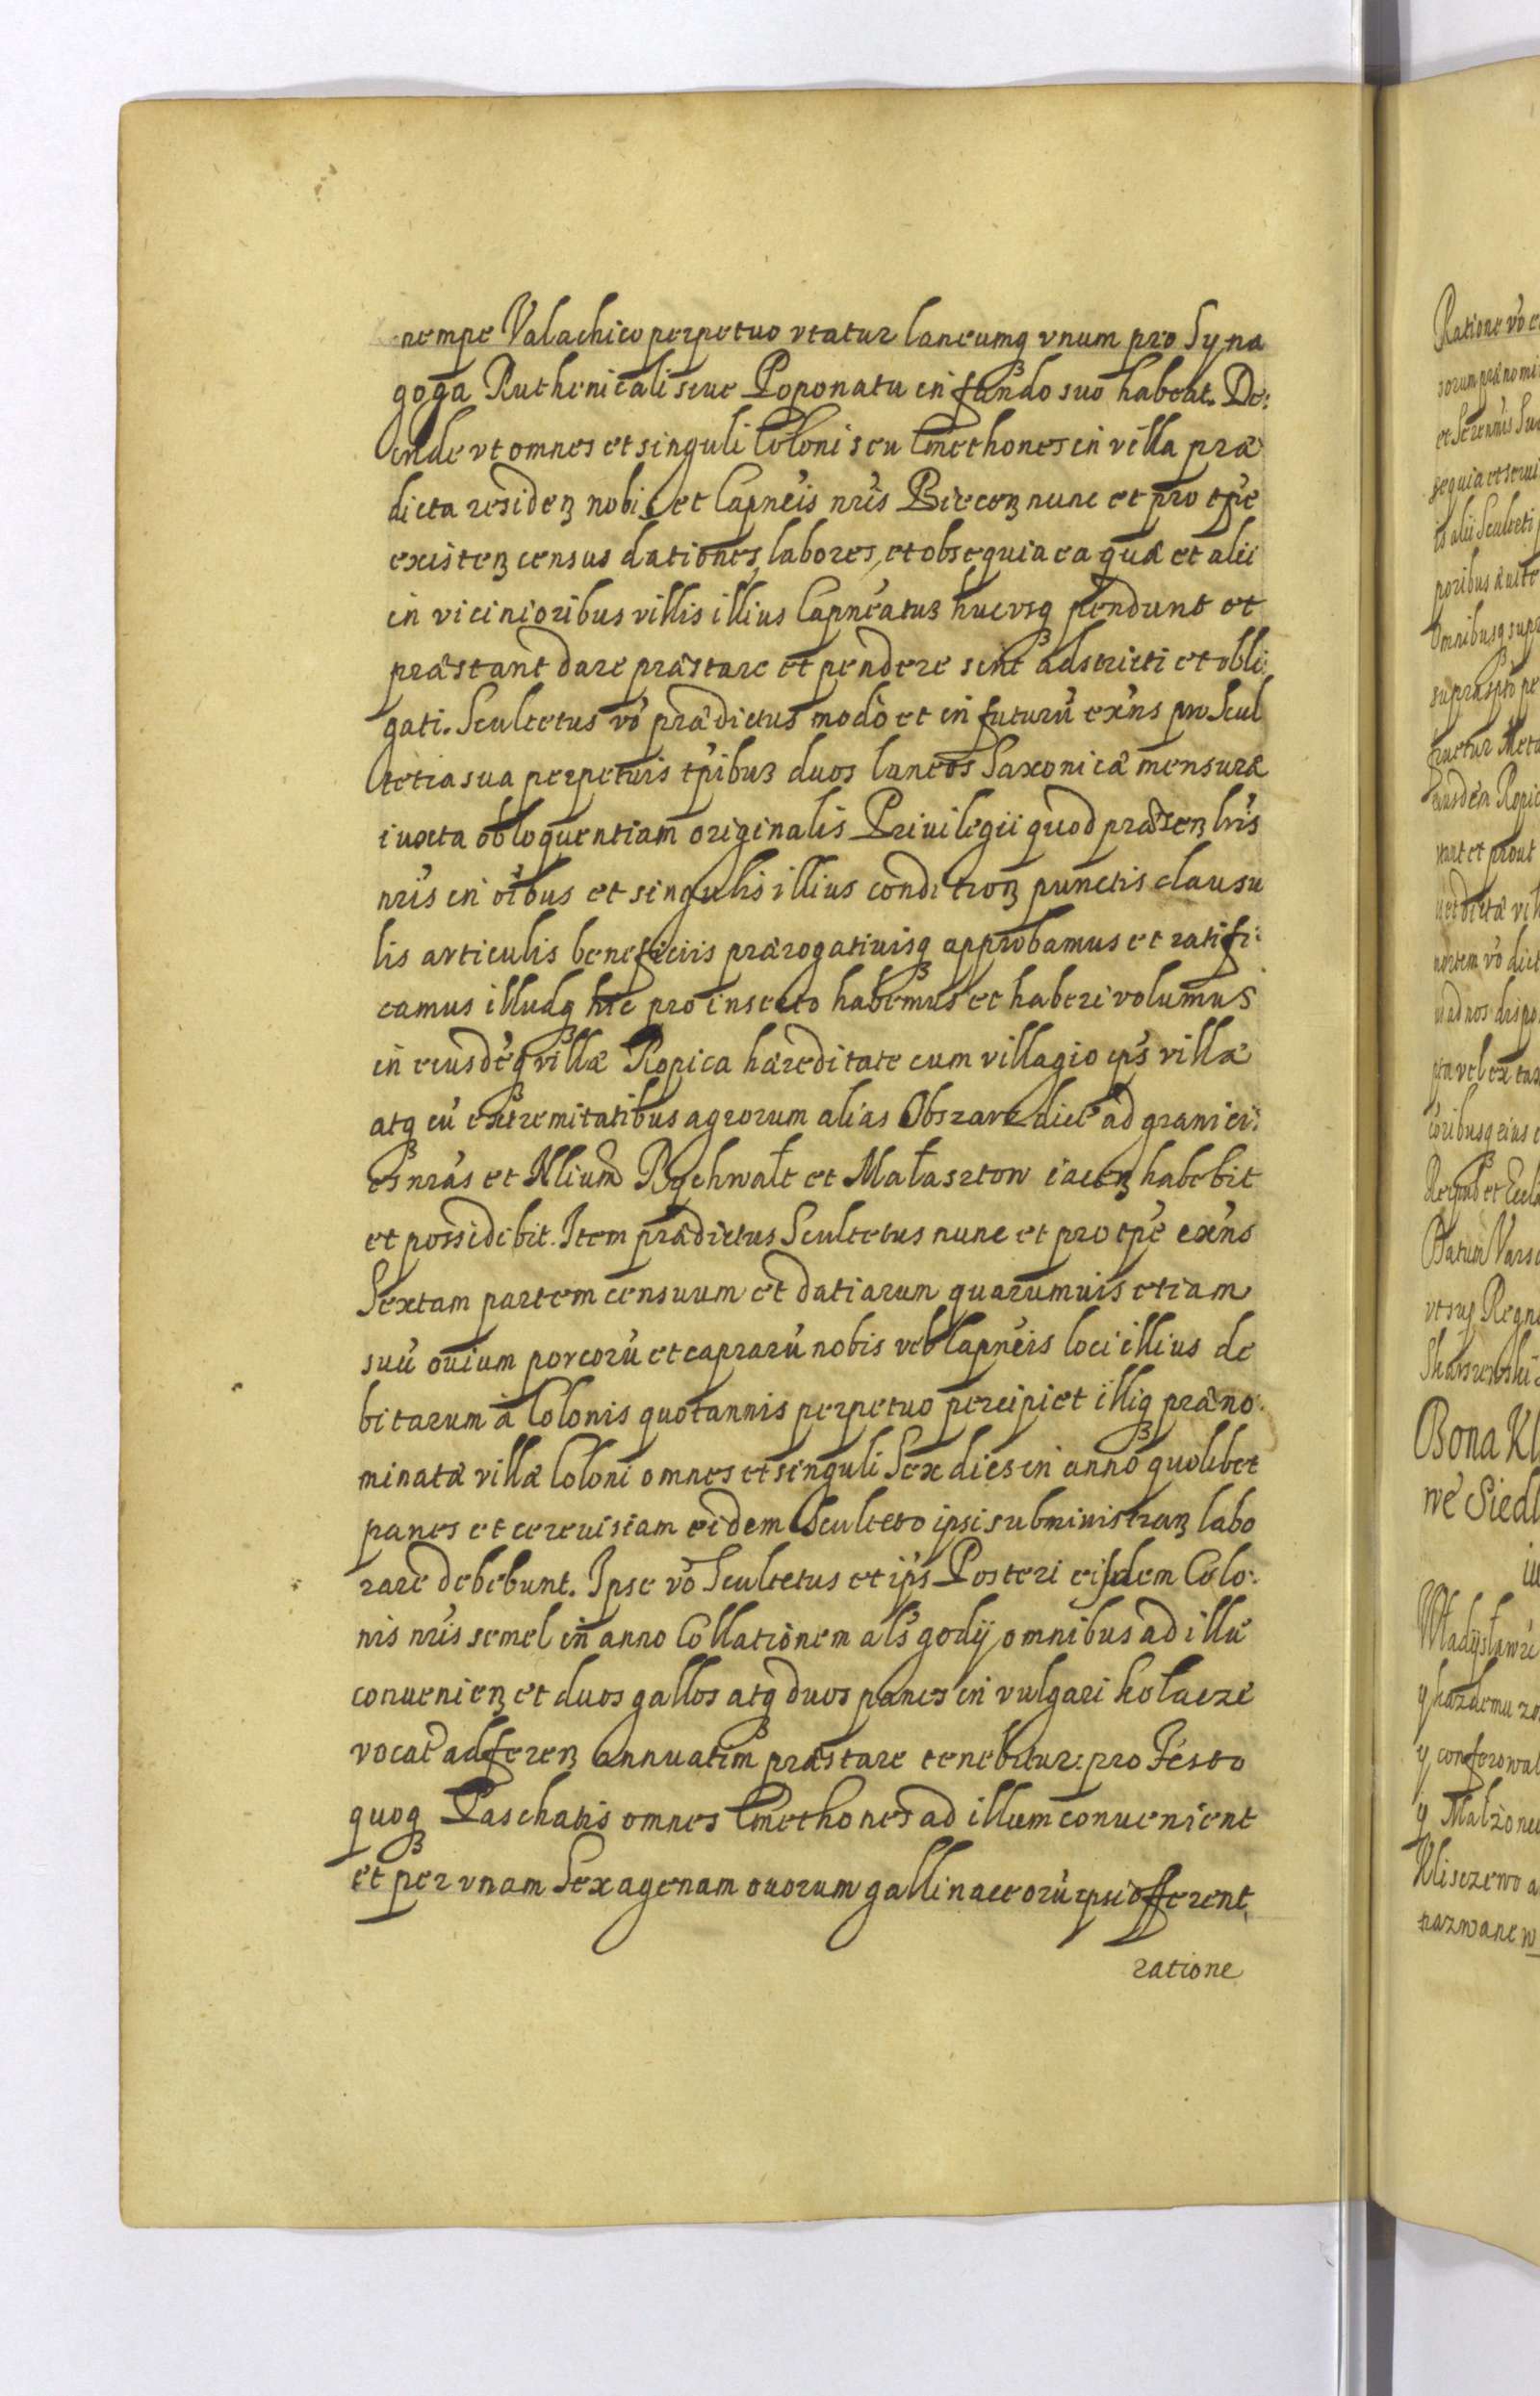 nempe Valachico perpetuo vtatur laneumq₃ vnum pro Syna
goga Ruthenicali siue Poponatu in fundo suo habeat. De:
inde vt omnes et singuli Coloni seu Cmethones in villa præ
dicta residen₃ nobis et Capnéis nrís Biecen₃ nunc et pro tpe
existen₃ census dationes, labores, et obsequia ea quæ et alii
in vicinioribus villis illius Capnéatus hucvsq₃ pendunt et
præstant dare præstare et pendere sint adstricti et obli:
gati. Scultetus vó prædictus modò et in futurũ exńs pro Scul
tetia sua perpetuis tpibus duos laneos Saxonicæ mensuræ
iuxta obloquentiam originalis Priuilegii quod præsen₃ lrís
nrís in oíbus et singulis illius condition₃ punctis clausu
lis articulis beneficiis prærogatiuisq₃ approbamus et ratifi:
camus illudq₃ hic pro inserto habemus et haberi volumus
in eiusdéq₃ villæ Ropica hæreditate cum villagio ips villæ
atq₃ cũ extremitatibus agrorum alias Obszary dict ad granici:
es nrás et Nlium Bychwałt et Małasztow iacen₃ habebit
et possidebit. Item prædictus Scultetus nunc et pro tpe exńs
Sextam partem censuum et datiarum quarumuis etiam
suũ ouium porcorũ et caprarũ nobis vel Capnéis loci illius de
bitarum à Colonis quotannis perpetuo percipiet illiq₃ præno:
minatæ villæ Coloni omnes et singuli Sex dies in anno quolibet
panes et cereuisiam eidem Sculteto ipsi subministran₃ labo
rare debebunt. Ipse vó Scultetus et ips Posteri eisdem Colo:
nis nrís semel in anno Collationem als godÿ omnibus ad illũ
conuenien₃ et duos gallos atq₃ duos panes in vulgari kołacze
vocat adferen₃ annuatim præstare tenebitur: pro Festo
quoq₃ Paschatis omnes Cmethones ad illum conuenient
et per vnam Sexagenam ouorum gallinaceorũ ipsi offerent,
ratione